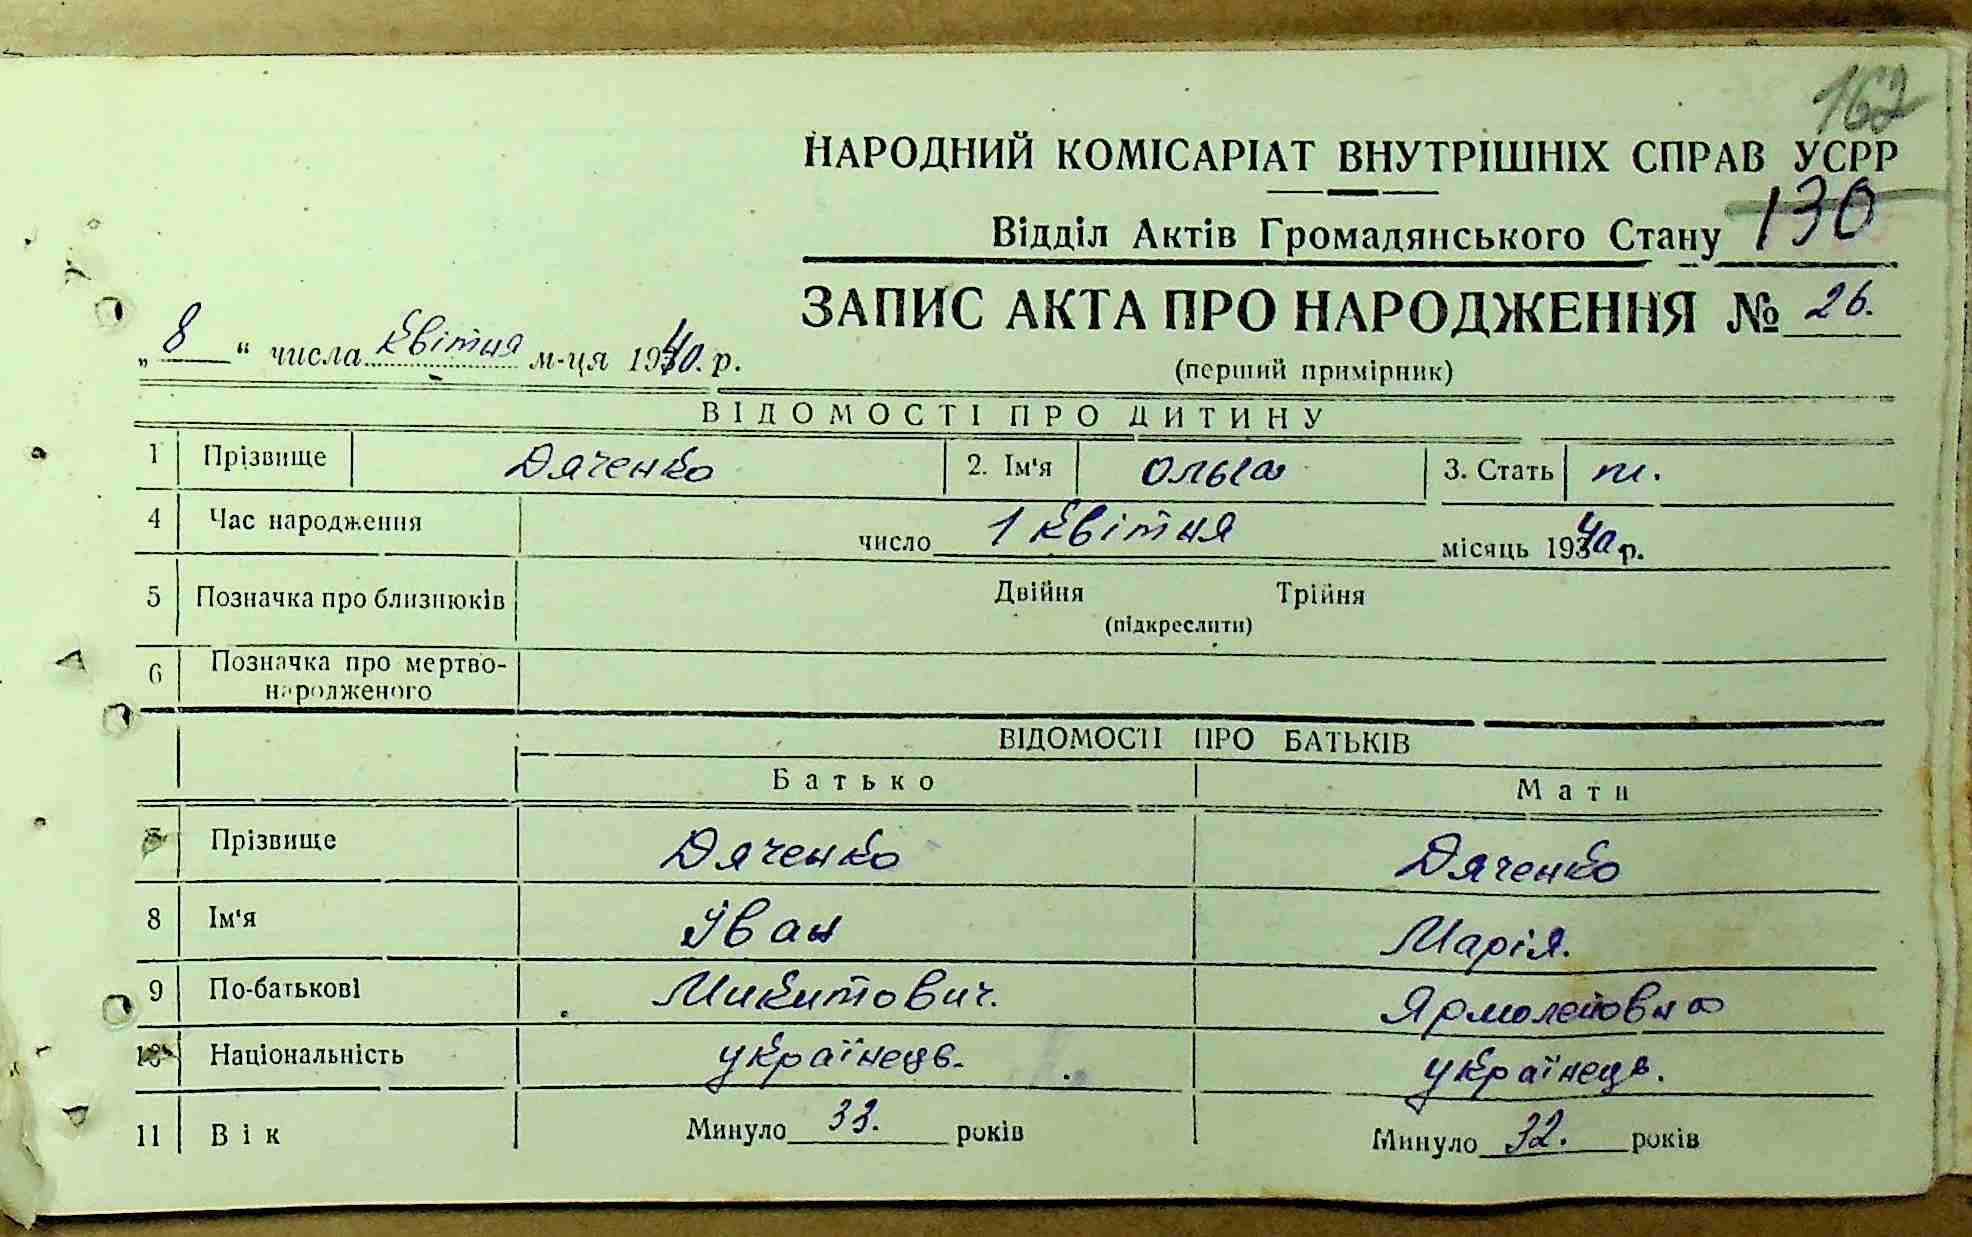 162
НАРОДНИЙ КОМІСАРІАТ ВНУТРІШНІХ СПРАВ УСРР
Відділ Актів Громадянського Стану 130
ЗАПИС АКТА ПРО НАРОДЖЕННЯ № 26.
„ 8 “ числа квітня м-ця 1940. р.
(перший примірник)
ВІДОМОСТІ ПРО ДИТИНУ
1 Прізвище Дяченко 2. Ім'я Ольга 3. Стать ж.
4 Час народження число 1 квітня місяць 1940 р.
5 Позначка про близнюків Двійня Трійня
(підкреслити)
6 Позначка про мертво-
народженого
ВІДОМОСТІ ПРО БАТЬКІВ
Батько Мати
7 Прізвище Дяченко Дяченко
8 Ім'я Іван Марія.
9 По-батькові Микитович. Ярмолеївна
10 Національність українець. українець.
11 Вік Минуло 33. років Минуло 32. років